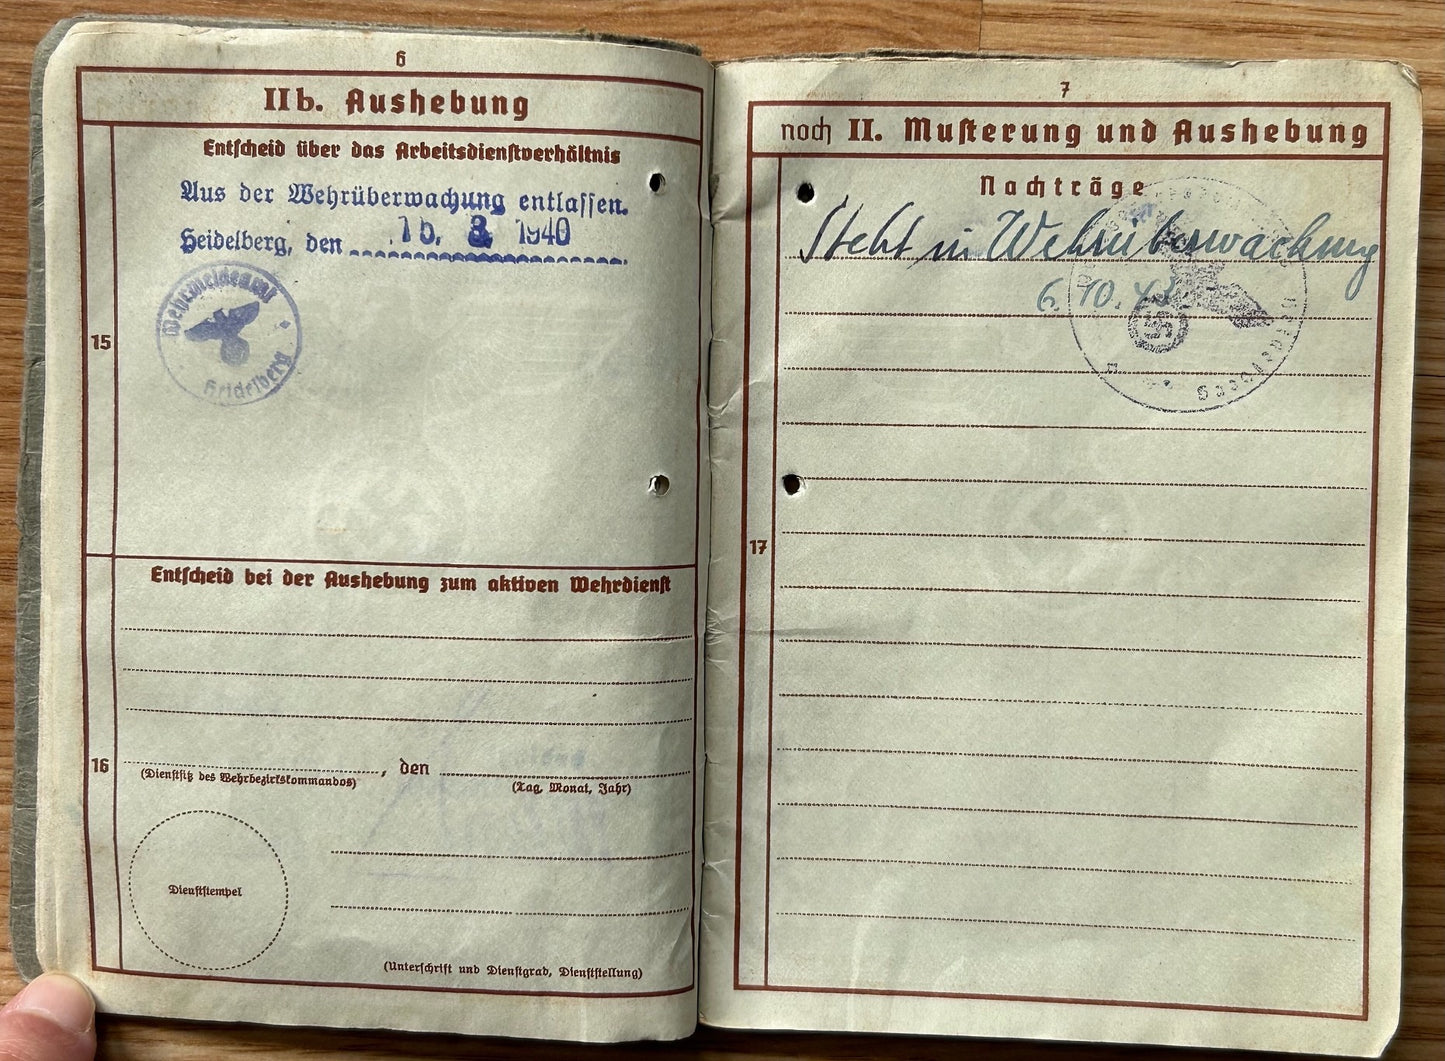 6
IIb. Aushebung
Entscheid über das Arbeitsdienstverhältnis
Aus der Wehrüberwachung entlassen.
Heidelberg, den 16. 8. 1940
Wehrmeldeamt
Heidelberg
15
Entscheid bei der Aushebung zum aktiven Wehrdienst
16
, den
(Dienstsitz des Wehrbezirkskommandos)
(Tag, Monat, Jahr)
Dienststempel
(Unterschrift und Dienstgrad, Dienststellung)
7
noch II. Musterung und Aushebung
Nachträge
Steht in Wehrüberwachung
6. 10. 43
17